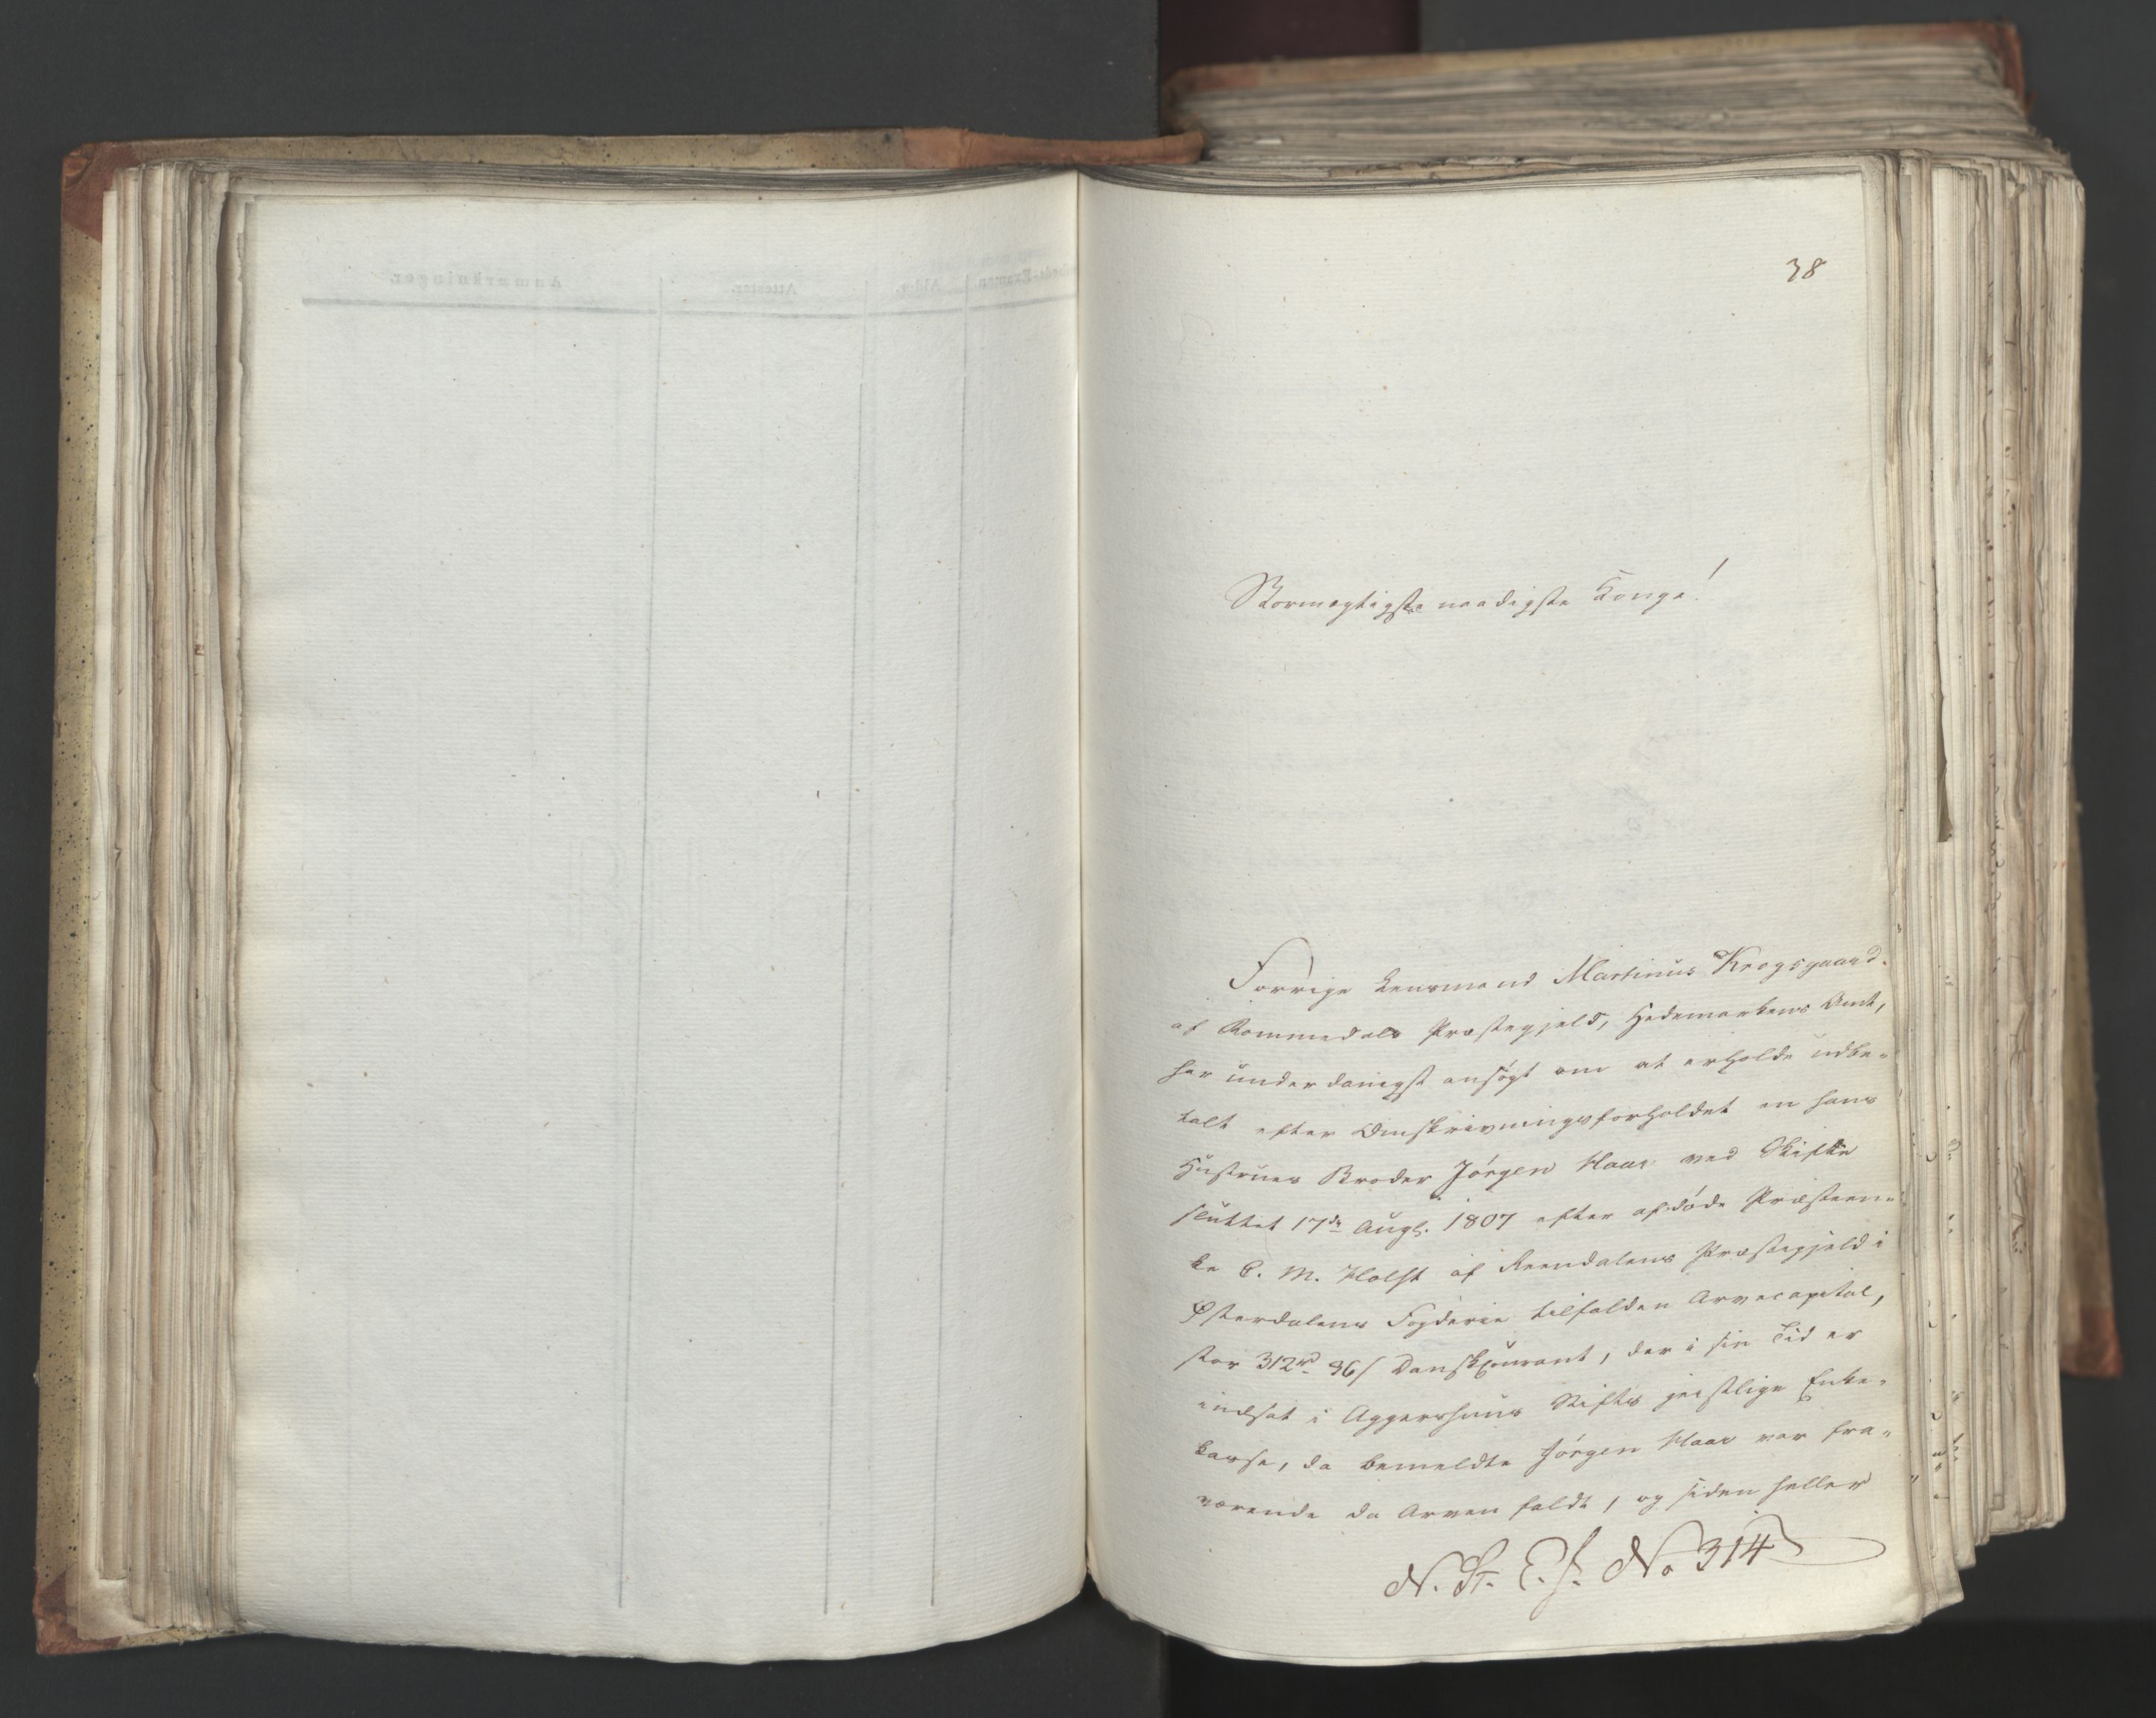 38
Stormægtigste naadigste Konge!
Forrige Lensmand Martinus Krogsgaard
af Rommedals Præstegjeld, Hedemarkens Amt,
har underdanigst ansøgt om at erholde udbe-
talt efter Omskrivningsforholdet en hans
Hustrues Broder Jørgen Haar ved Skifte
sluttet 17de Augs. 1807 efter afdøde Præsteen-
ke C. M. Holst af Reendalens Præstegjeld i
Østerdalens Fogderie tilfalden Arvecapital,
stor 312rd 36s Dansk Courant, der i sin Tid er
indsat i Aggershuus Stifts geistlige Enke-
kasse, da bemeldte Jørgen Haar var fra-
værende da Arven faldt, og siden heller
N. St. E. J. No 314